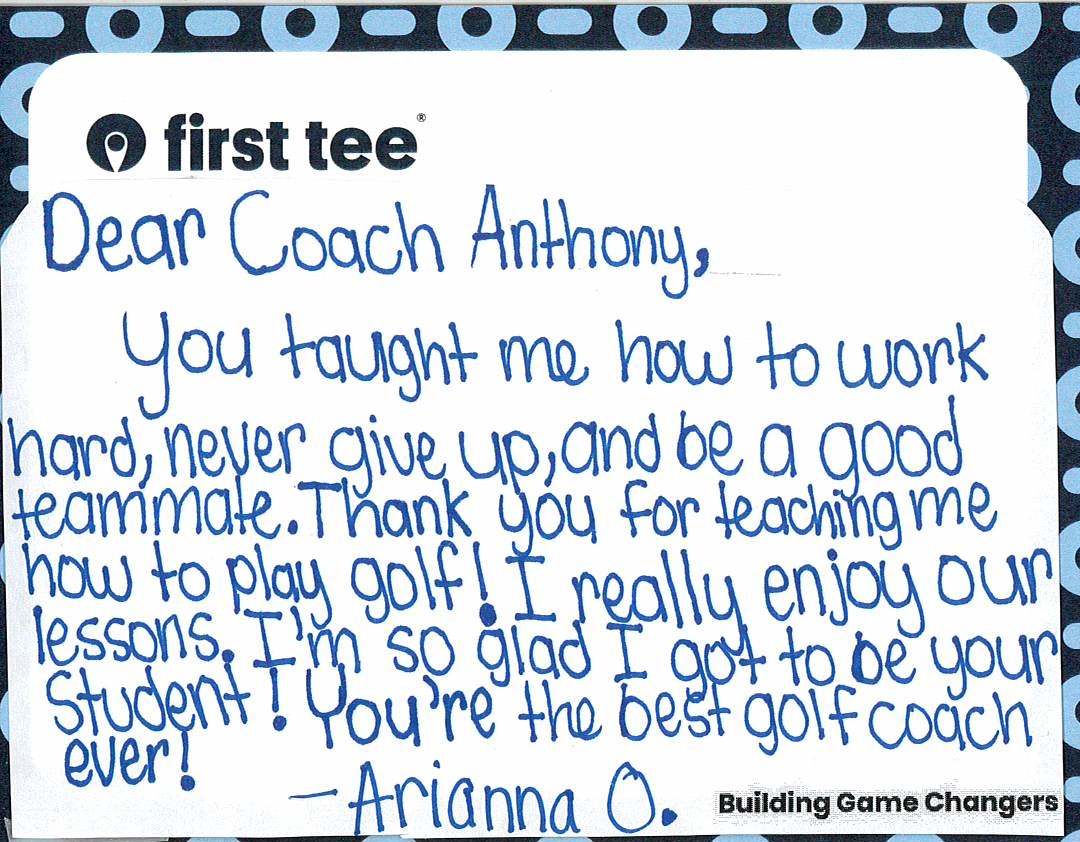 first tee®
Dear Coach Anthony,
You taught me how to work
hard, never give up, and be a good
teammate. Thank you for teaching me
how to play golf! I really enjoy our
lessons. I'm so glad I got to be your
student! You're the best golf coach
ever!
- Arianna O.
Building Game Changers